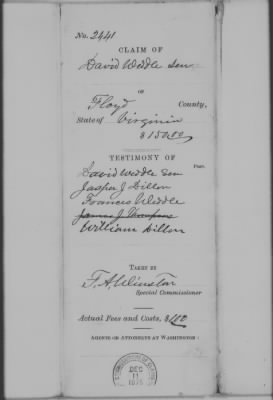 No. 2441
CLAIM OF
David Weddle Sen
OF
Floyd County,
State of Virginia
$150.00
TESTIMONY OF
Page.
David Weddle Sen
Jasper J Dillon
Francis Weddle
James J Thompson
William Dillon
TAKEN BY
F. A. Winston
Special Commissioner
Actual Fees and Costs, $
AGENTS OR ATTORNEYS AT WASHINGTON:
DEC
11